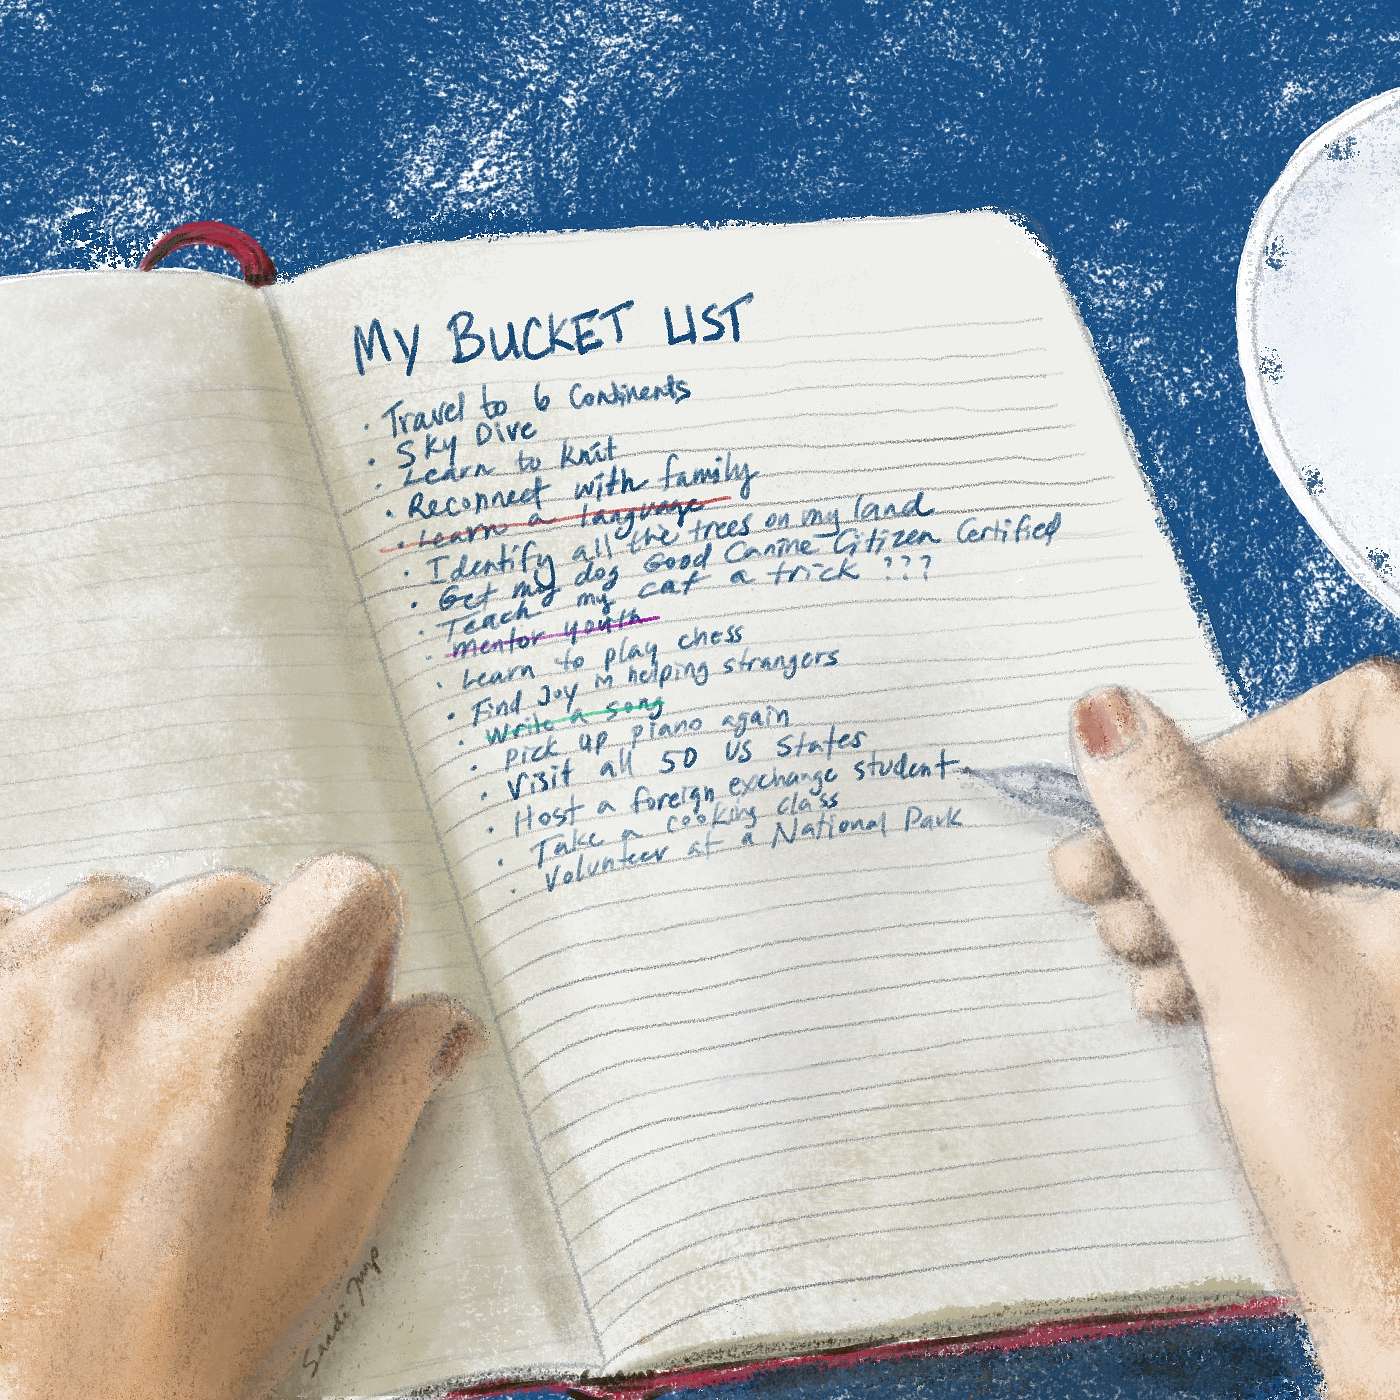 My BUCKET LIST
· Travel to 6 Continents
· Sky Dive
· Learn to knit
· Reconnect with family
· Learn a language
· Identify all the trees on my land
· Get my dog Good Canine Citizen Certified
· Teach my cat a trick ???
· Mentor youth
· Learn to play chess
· Find Joy in helping strangers
· Write a song
· Pick up piano again
· Visit all 50 US States
· Host a foreign exchange student
· Take a cooking class
· Volunteer at a National Park
Sandi